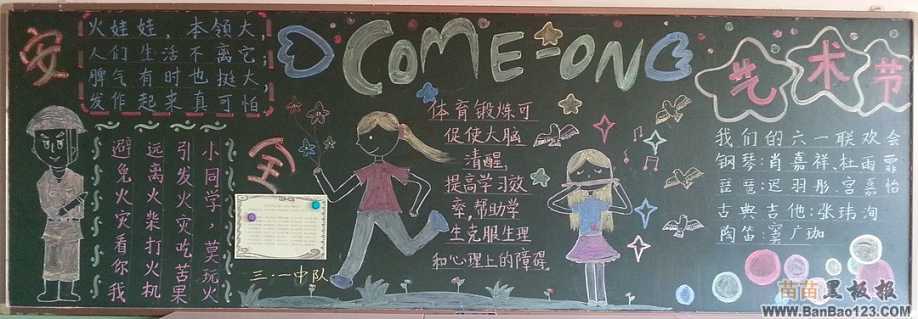 安
全
火娃娃，本领大，
人们生活不离它；
脾气有时也挺大，
发作起来真可怕
小同学，莫玩火
引发火灾吃苦果
远离火柴打火机
避免火灾看你我
三·一中队
COME-ON
体育锻炼可
促使大脑
清醒，
提高学习效
率，帮助学
生克服生理
和心理上的障碍。
艺术节
我们的六一联欢会
钢琴：肖嘉祥、杜雨霏
琵琶：迟羽彤、宫嘉怡
古典吉他：张玮洵
陶笛：窦广珈
苗苗黑板报
www.BanBao123.com